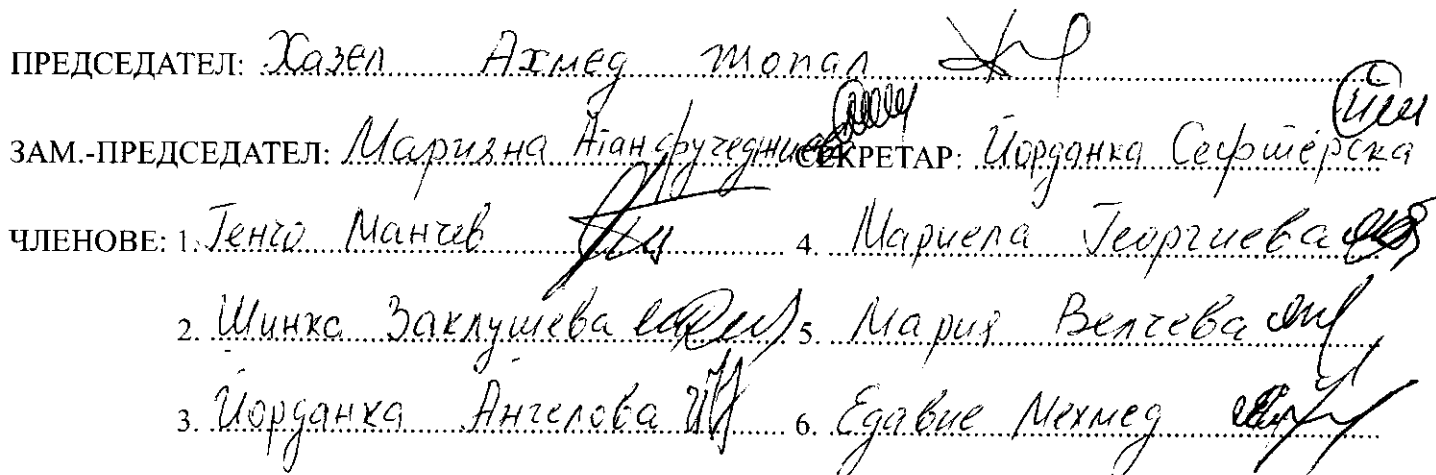 ПРЕДСЕДАТЕЛ: Хазел Ахмед Топал
ЗАМ.-ПРЕДСЕДАТЕЛ: Марияна СЕКРЕТАР: Йорданка Сефтерска
ЧЛЕНОВЕ: 1. Генчо Манчев 4. Мариела Георгиева
2. Шинка Заклушева 5. Мария Велчева
3. Йорданка Ангелова 6. Едавие Мехмед